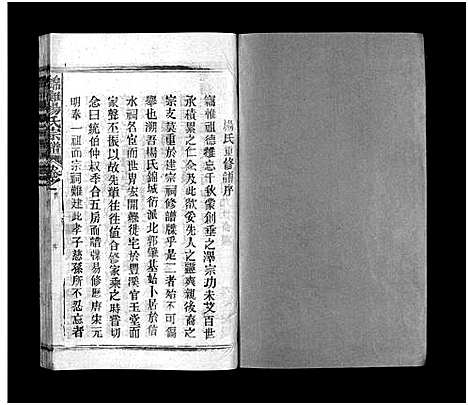 楊氏重修譜序
竊惟祖德難忘千秋蒙創垂之澤宗功未艾百世
承積累之仁念及此欲妥先人之靈爽親後裔之
宗支莫重於建宗祠修譜牒乎是二者始不可偏
舉也溯吾楊氏錦城衍派北郭肇基始卜居於信
水祠名宦而世居宏開繼徙宅於豐溪官玉堂而
家聲丕振以故先輩往往值合修家乘之時嘗切
念曰統伯仲叔季合五房而譜牒易修歷唐宋元
明奉一祖而宗祠難建此孝子慈孫所不忍忘者
楊氏宗譜